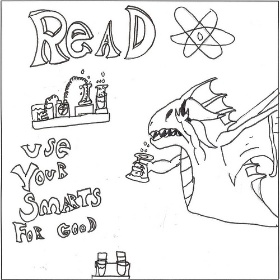 ReaD
use
Your
SmartS
For Good